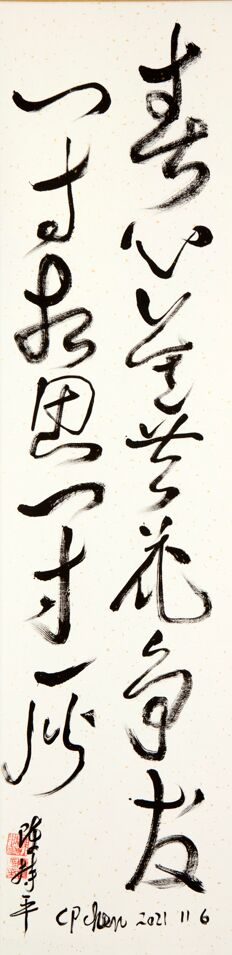 春心莫共花争发
一寸相思一寸灰
陳持平
CP Chen 2021 11 6